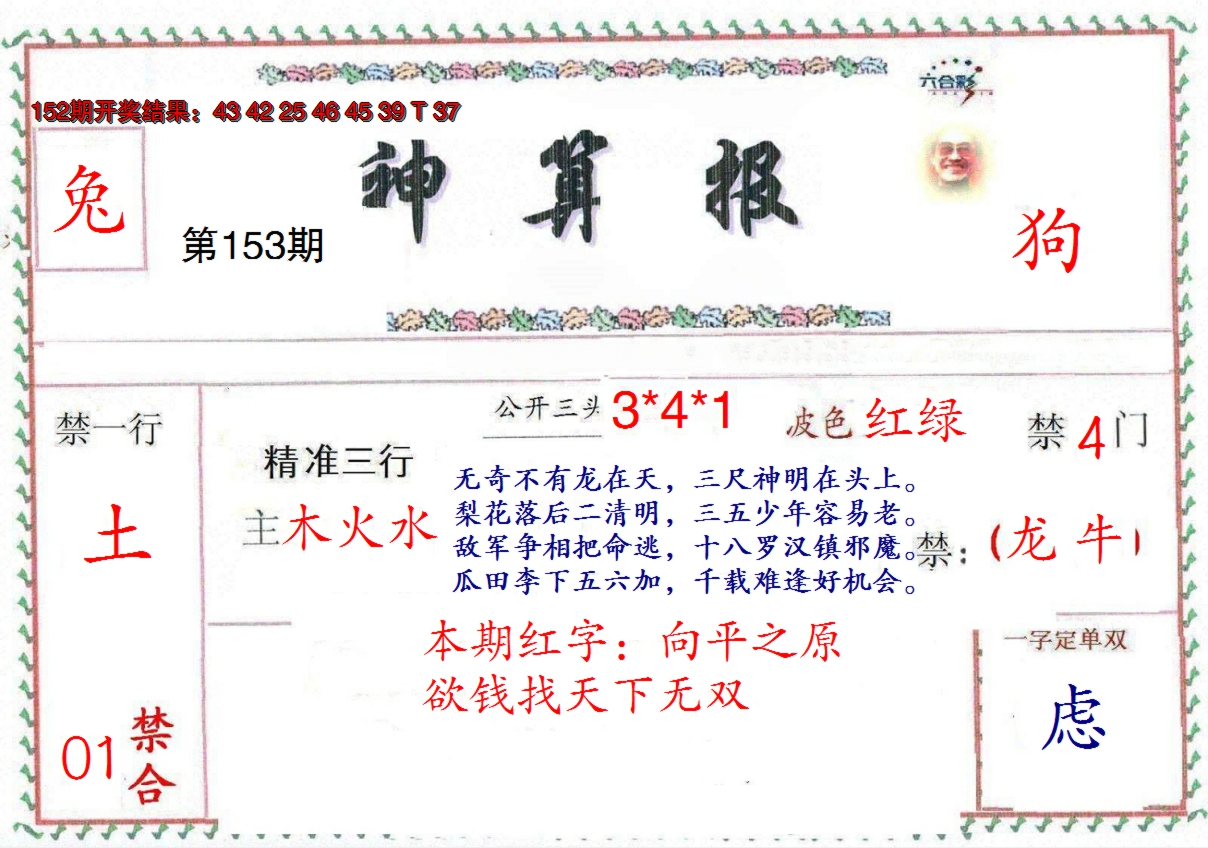 六合彩
152期开奖结果：43 42 25 46 45 39 T 37
神算报
兔
第153期
狗
禁一行
土
01 禁合
精准三行
主木火水
公开三头 3*4*1
波色 红绿
禁 4 门
无奇不有龙在天，三尺神明在头上。
梨花落后二清明，三五少年容易老。
敌军争相把命逃，十八罗汉镇邪魔。
瓜田李下五六加，千载难逢好机会。
禁：（龙 牛）
本期红字：向平之原
欲钱找天下无双
一字定单双
虑